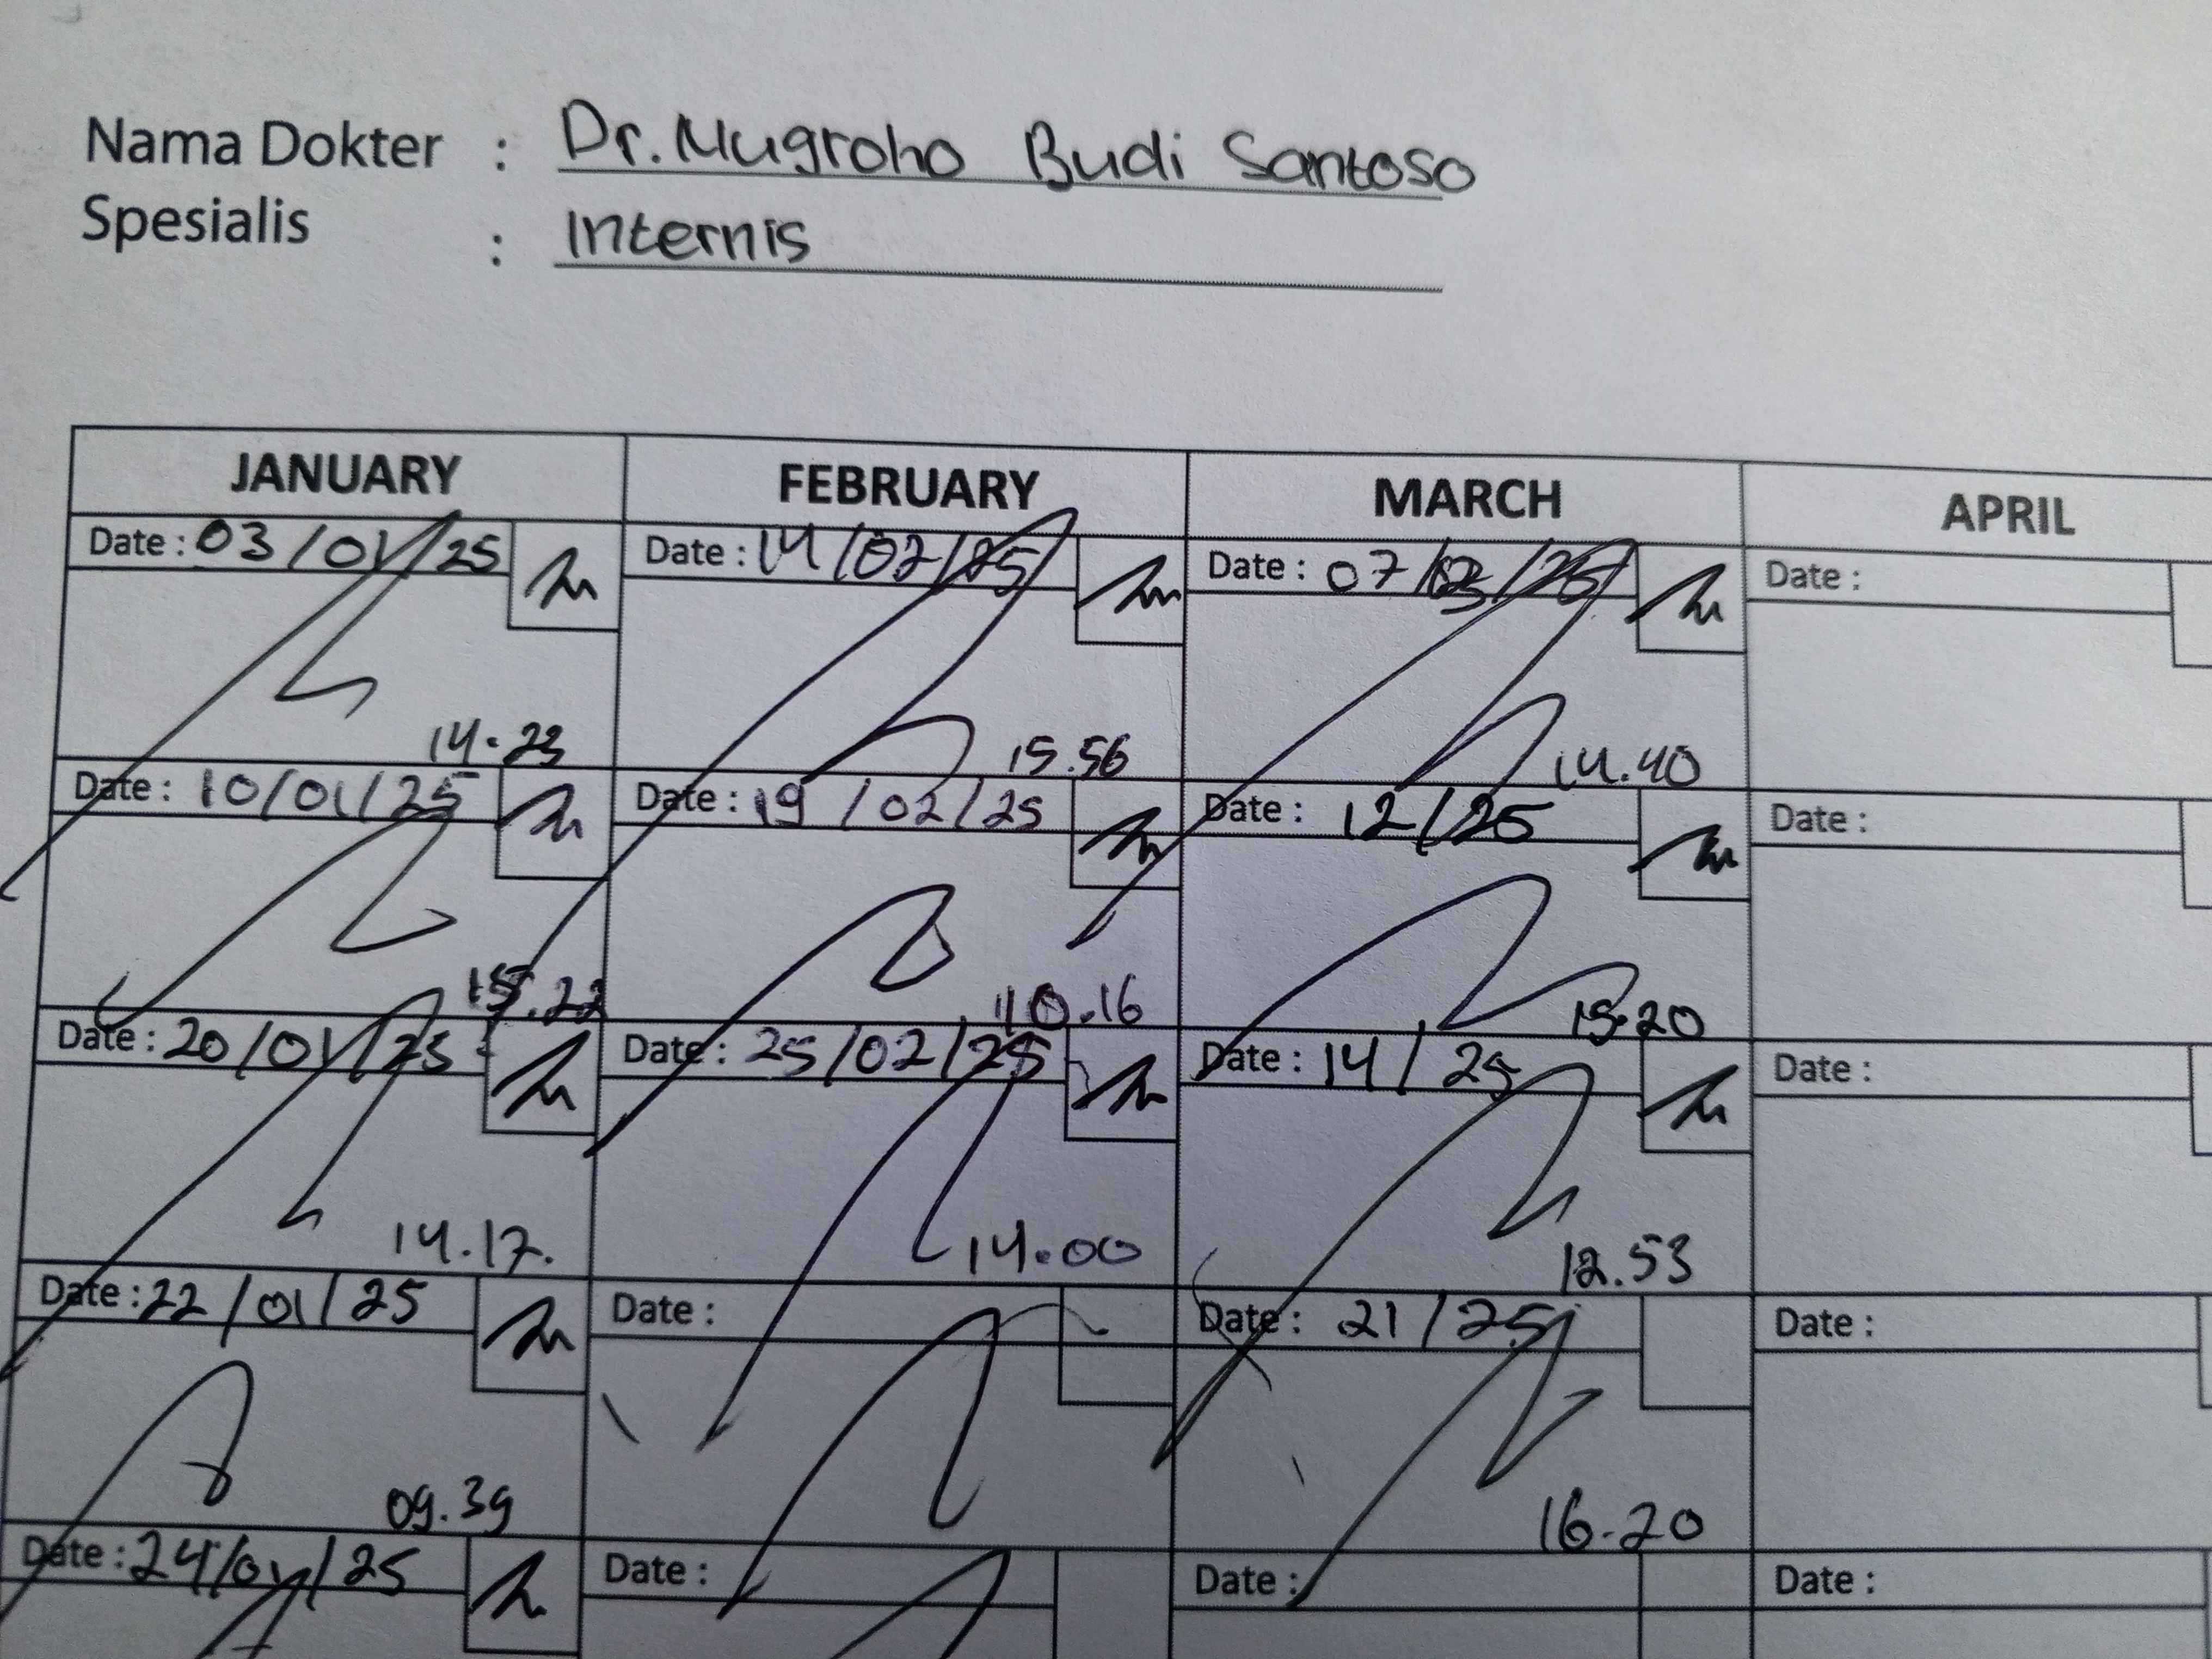 Nama Dokter : Dr. Nugroho Budi Santoso
Spesialis : Internis
JANUARY FEBRUARY MARCH APRIL
Date : 03/01/25 Date : 14/02/25 Date : 07/03/25 Date :
14.23 15.56 14.40
Date : 10/01/25 Date : 19/02/25 Date : 12/25 Date :
15.22 10.16 15.20
Date : 20/01/25 Date : 25/02/25 Date : 14/25 Date :
14.17. 14.00 12.53
Date : 22/01/25 Date : Date : 21/25 Date :
09.39 16.20
Date : 24/01/25 Date : Date : Date :